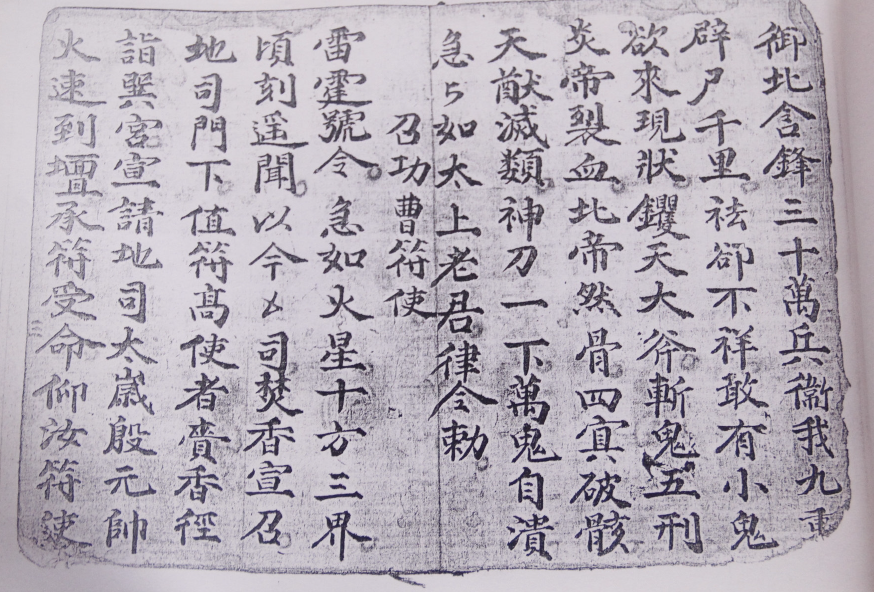 御北含鋒三十萬兵衞我九重
辟尸千里祛卻不祥敢有小鬼
欲來現狀钁天大斧斬鬼五刑
炎帝裂血北帝然骨四寘破骸
天猷滅類神刀一下萬鬼自潰
急々如太上老君律令勅
召功曹符使
雷霆號令急如火星十方三界
頃刻遥聞以今厶司焚香宣召
地司門下值符高使者賫香徑
詣巽宮宣請地司太嵗殷元帥
火速到壇承符受命仰汝符使